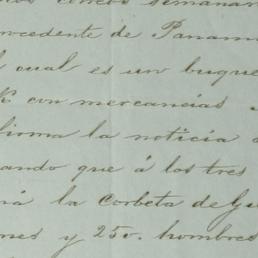 correos semanar
rocedente de Panam
l cual es un buque
con mercancias
firma la noticia
ando que á los tres
rá la Corbeta de Gu
nes y 250. hombres